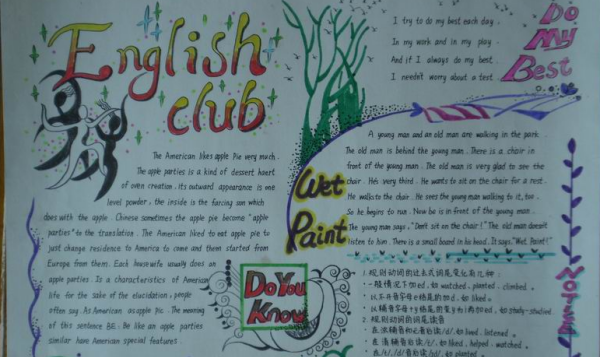 English
club
The American likes apple pie very much.
The apple parties is a kind of dessert haert
of oven creation, its outward appearance is one
level powder, the inside is the farcing sun which
does with the apple. Chinese sometimes the apple pie become "apple
parties" to the translation. The American liked to eat apple pie to
just change residence to America to come and then started from
Europe from them. Each housewife usually does an
apple parties. Is a characteristics of American
life for the sake of the elucidation, people
often say: As American as apple pie. The meaning
of this sentence BE: Be like an apple parties
similar have American special features.
Do My Best
I try to do my best each day.
In my work and in my play.
And if I always do my best.
I needn't worry about a test.
Wet
Paint
A young man and an old man are walking in the park.
The old man is behind the young man. There is a chair in
front of the young man. The old man is very glad to see the
chair. He's very third. He wants to sit on the chair for a rest.
He walks to the chair. He sees the young man walking to it, too.
So he begins to run. Now he is in front of the young man.
The young man says, "Don't sit on the chair!" The old man doesn't
listen to him. There is a small board in his hand. It says, "Wet Paint!"
Do You
Know
1. 规则动词的过去式词尾变化有几种:
·一般情况下加ed, 如watched, planted, climbed.
·以不发音字母e结尾的加d, 如liked.
·以辅音字母+y结尾的变y为i再加ed, 如study-studied.
2. 规则动词的词尾读音
·在浊辅音和元音后读/d/, 如lived, listened.
·在清辅音后读/t/, 如liked, helped, watched.
·在/t/,/d/音后读/id/, 如planted